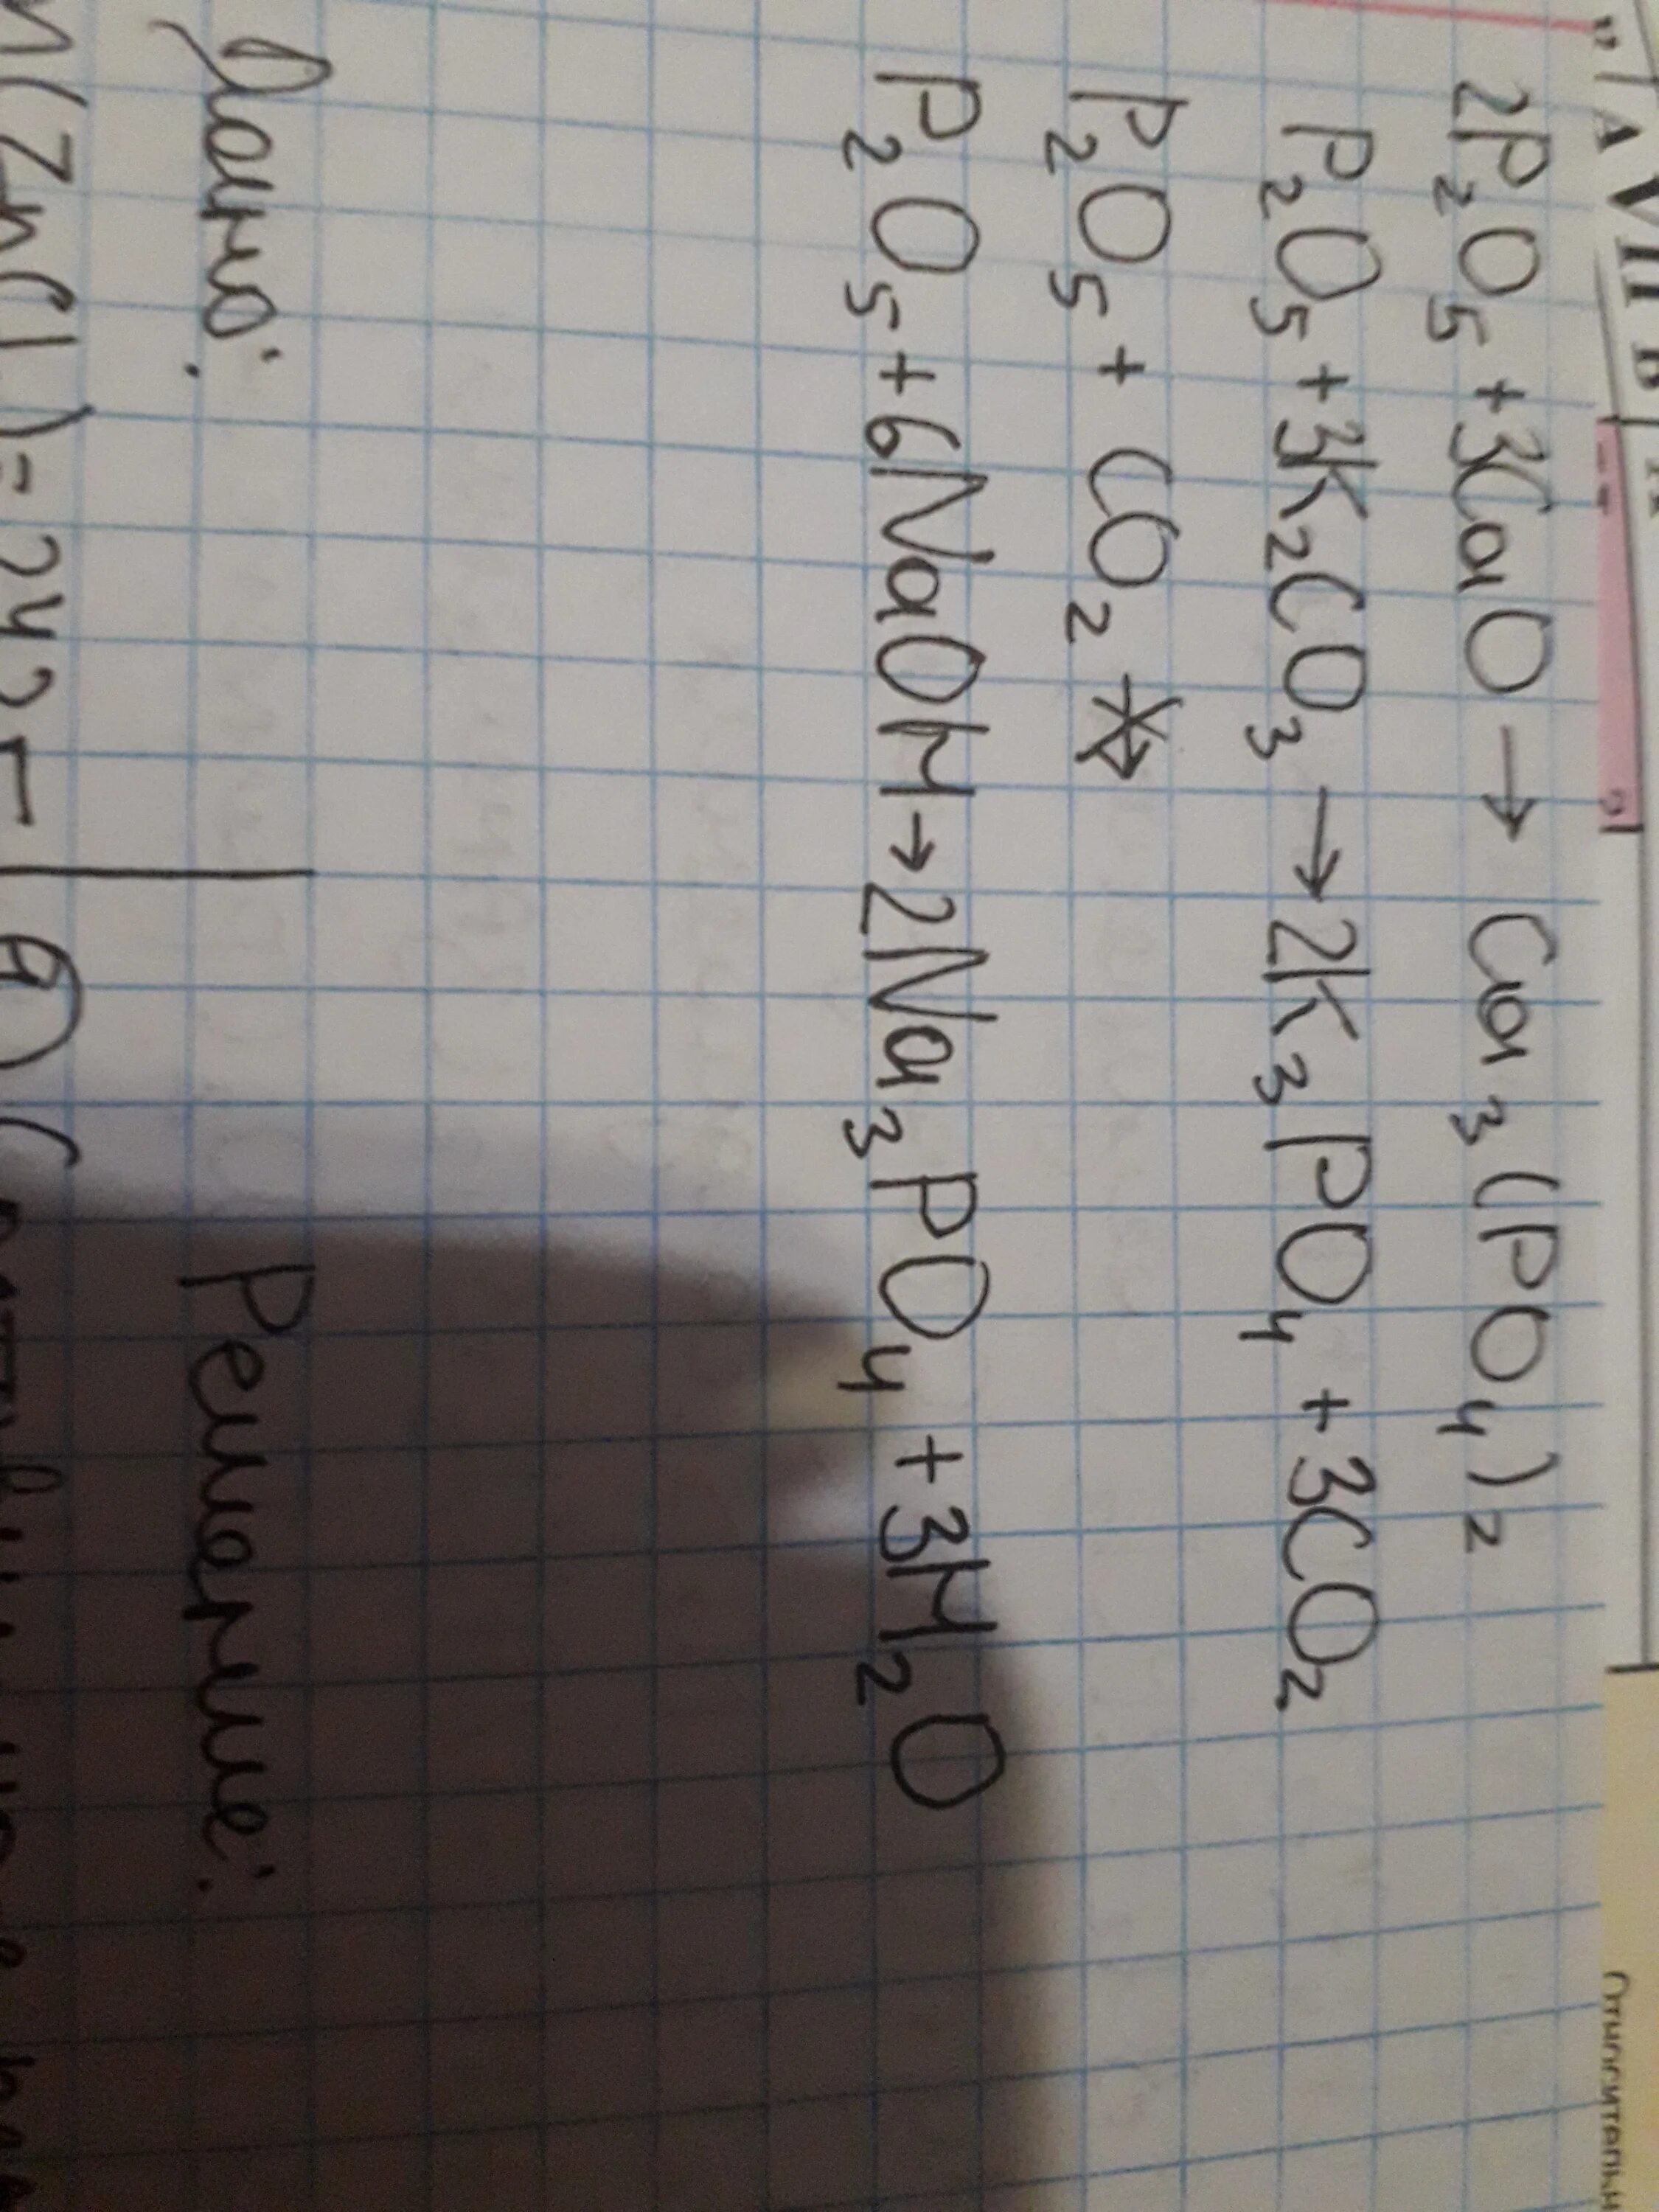 " / A VII B
2P₂O₅ + 3CaO → Ca₃(PO₄)₂
P₂O₅ + 3K₂CO₃ → 2K₃PO₄ + 3CO₂
P₂O₅ + CO₂ ↛
P₂O₅ + 6NaOH → 2Na₃PO₄ + 3H₂O
Дано: Решение: